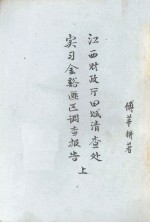 江西财政厅田赋清查处
实习金谿县区调查报告
上
傅莘耕著